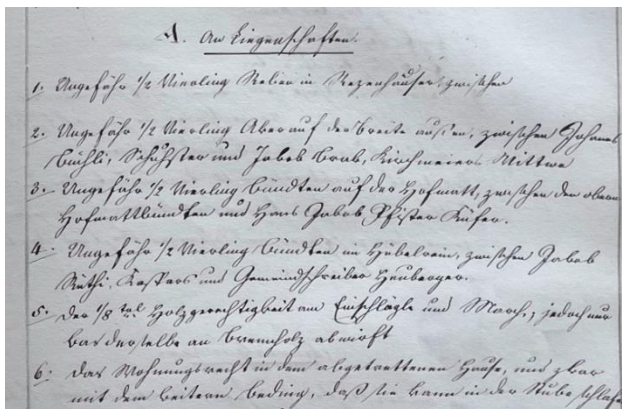 A. An Liegenschaften.
1. Ungefähr 1/2 Vierling Reben in Rezenhäuser, zwischen
2. Ungefähr 1/2 Vierling Aber auf der Breite aussen, zwischen Johannes
Bühli, Schuster und Jakob Brab, Kirchmeiers Wittwe
3. Ungefähr 1/2 Vierling Bündten auf der Hofmatt, zwischen den obern
Hofmattbündten und Hans Jakob Pfister Küfer.
4. Ungefähr 1/2 Vierling Bündten in Hübelrein, zwischen Jakob
Rüthi, Kaspers und Gemeindschreiber Heuberger.
5. Der 1/8 tel Holzgerechtigkeit am Einschlägle und March, jedoch nur
was derselbe an Brennholz abwirft
6. Das Wohnungsrecht in dem abgetrettenen Hause, und zwar
mit dem weitern Beding, daß sie kann in der Stube schlafe